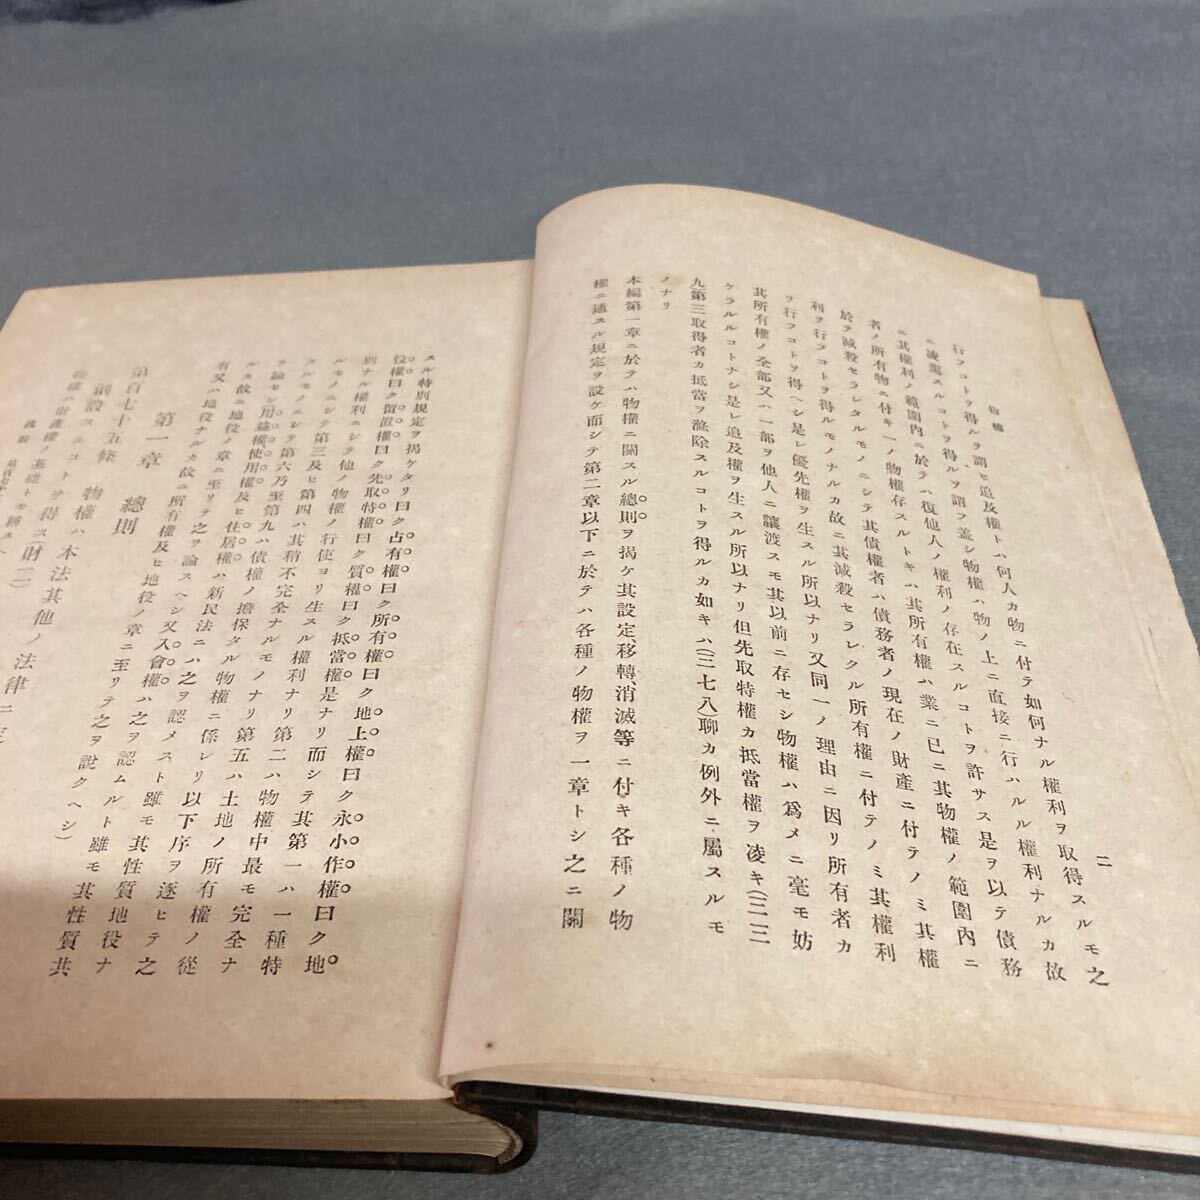 物權
二
行フコトヲ得ルヲ謂ヒ追及權トハ何人カ物ニ付テ如何ナル權利ヲ取得スルモ之
ニ凌駕スルコトヲ得ルヲ謂フ蓋シ物權ハ物ノ上ニ直接ニ行ハルル權利ナルカ故
ニ其權利ノ範圍内ニ於テハ復他人ノ權利ノ存在スルコトヲ許サス是ヲ以テ債務
者ノ所有物ニ付キ一ノ物權存スルトキハ其所有權ハ業ニ已ニ其物權ノ範圍内ニ
於テ減殺セラレタルモノニシテ其債權者ハ債務者ノ現在ノ財產ニ付テノミ其權
利ヲ行フコトヲ得ルモノナルカ故ニ其減殺セラレタル所有權ニ付テノミ其權利
ヲ行フコトヲ得ヘシ是レ優先權ヲ生スル所以ナリ又同一ノ理由ニ因リ所有者カ
其所有權ノ全部又ハ一部ヲ他人ニ讓渡スモ其以前ニ存セシ物權ハ爲メニ毫モ妨
ケラルルコトナシ是レ追及權ヲ生スル所以ナリ但先取特權カ抵當權ヲ凌キ(三三
九)第三取得者カ抵當ヲ滌除スルコトヲ得ルカ如キハ(三七八)聊カ例外ニ屬スルモ
ノナリ
本編第一章ニ於テハ物權ニ關スル總則ヲ揭ケ其設定、移轉、消滅等ニ付キ各種ノ物
權ニ通スル規定ヲ設ケ而シテ第二章以下ニ於テハ各種ノ物權ヲ一章トシ之ニ關
スル特別規定ヲ揭ケタリ曰ク占有權曰ク所有權曰ク地上權曰ク永小作權曰ク地
役權曰ク留置權曰ク先取特權曰ク質權曰ク抵當權是ナリ而シテ其第一ハ一種特
別ナル權利ニシテ他ノ物權ノ行使ヨリ生スル權利ナリ第二ハ物權中最モ完全ナ
ルモノニシテ第三及ヒ第四ハ其稍不完全ナルモノナリ第五ハ土地ノ所有權ノ從
タルモノニシテ第六乃至第九ハ債權ノ擔保タル物權ニ係レリ以下序ヲ逐ヒテ之
ヲ論セン用益權、使用權及ヒ住居權ハ新民法ニハ之ヲ認メスト雖モ其性質地役ナ
ルカ故ニ地役ノ章ニ至リテ之ヲ論スヘシ又入會權ハ之ヲ認ムルト雖モ其性質共
有又ハ地役ナルカ故ニ所有權及ヒ地役ノ章ニ至リテ之ヲ說クヘシ)
第一章 總則
第百七十五條 物權ハ本法其他ノ法律ニ定
創設スルコトヲ得ス(財二)
物權ハ財產權ノ基礎トモ稱スヘ
總則 第百七十